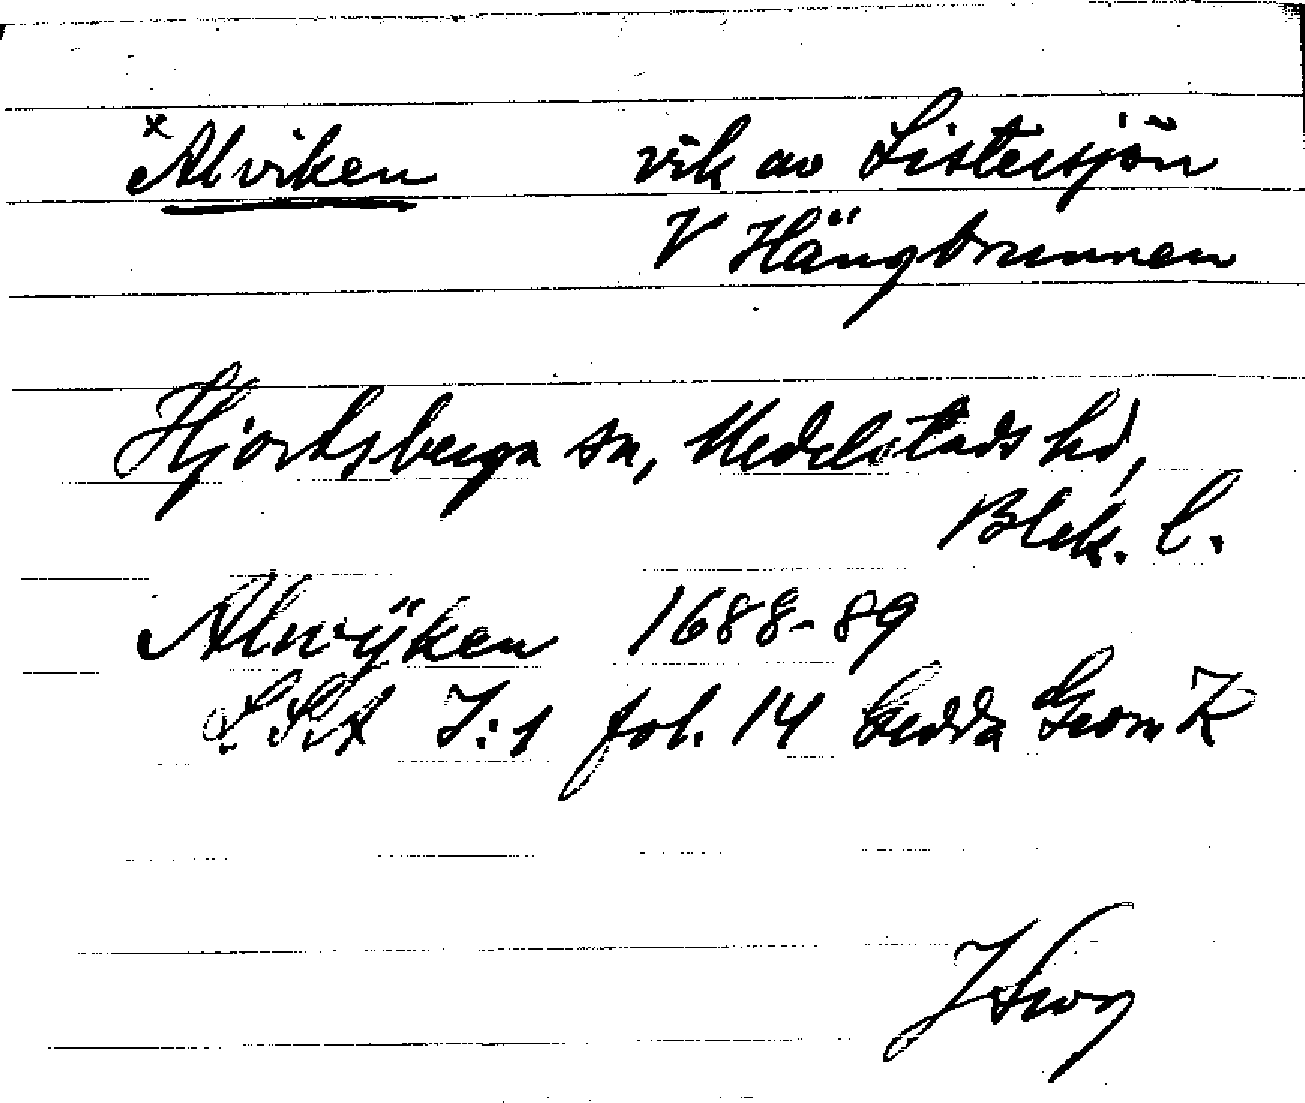 x Alviken vik av Listersjön
V Hängbrunnen
Hjortsberga sn, Medelstads hd,
Blek. l.
Alwÿken 1688-89
LSA I:1 fol. 14 Gedda Geom K